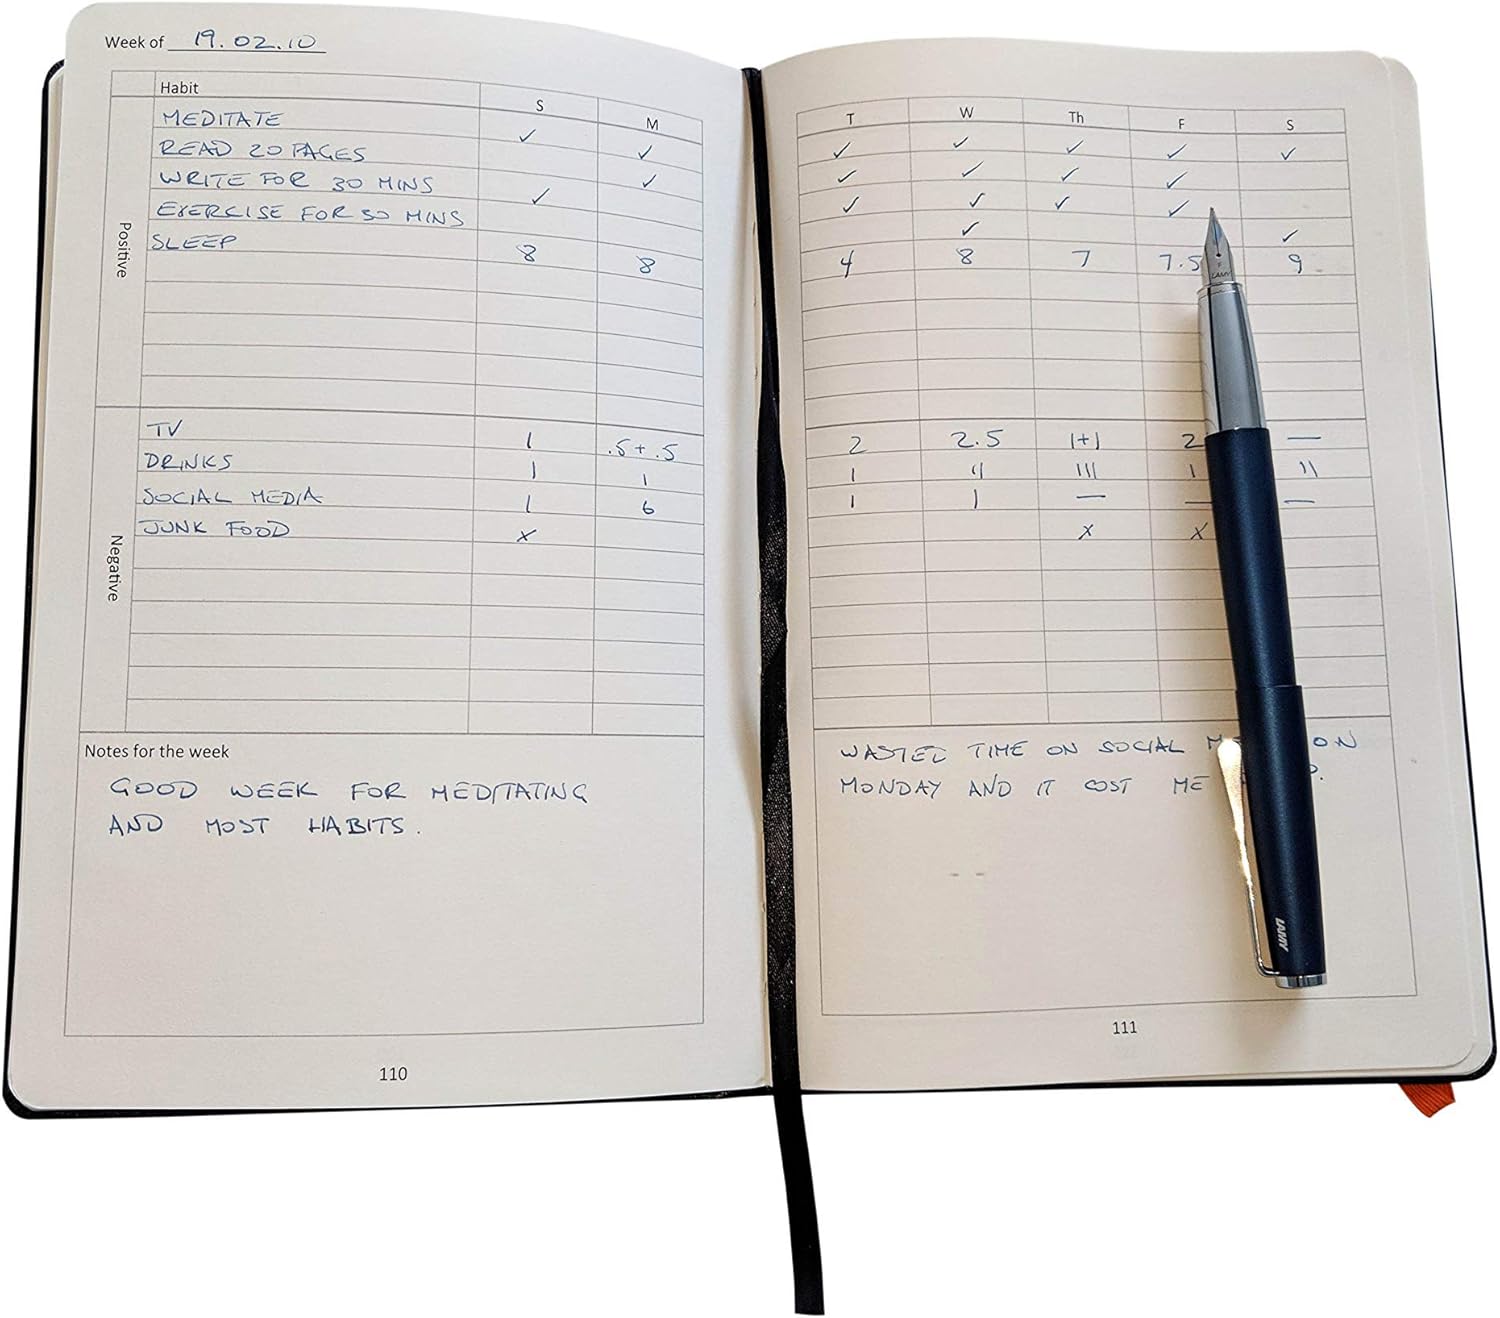 Week of 19.02.10
Habit S M
Positive
MEDITATE ✓ ✓
READ 20 PAGES ✓
WRITE FOR 30 MINS ✓
EXERCISE FOR 30 MINS
SLEEP 8 8
Negative
TV 1 .5+.5
DRINKS | |
SOCIAL MEDIA 1 6
JUNK FOOD x
Notes for the week
GOOD WEEK FOR MEDITATING
AND MOST HABITS.
110
T W Th F S
✓ ✓ ✓ ✓ ✓
✓ ✓ ✓ ✓
✓ ✓ ✓ ✓
✓ ✓
4 8 7 7.5 9
2 2.5 1+1 2 —
| || ||| | ||
1 1 — — —
x x
WASTED TIME ON SOCIAL ON
MONDAY AND IT COST ME
111
F
LAMY
LAMY